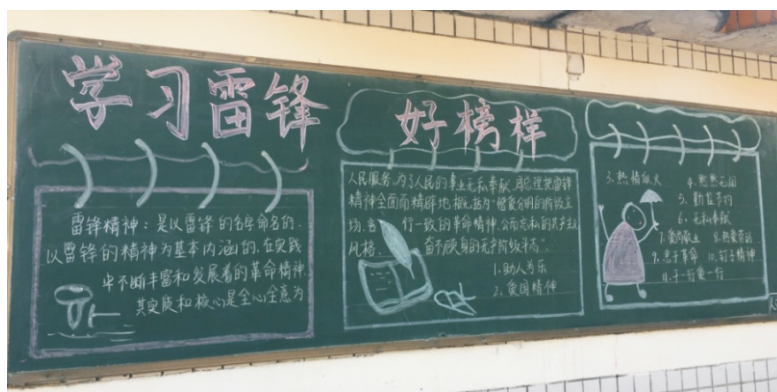 学习雷锋
好榜样
雷锋精神：是以雷锋的名字命名的，
以雷锋的精神为基本内涵的，在实践
中不断丰富和发展着的革命精神
其实质和核心是全心全意为
人民服务，为了人民的事业无私奉献，周总理把雷锋
精神全面而精辟地概括为“憎爱分明的阶级立
场、言行一致的革命精神、公而忘私的共产主义
风格、奋不顾身的无产阶级斗志”。
1.助人为乐
2.爱国精神
3.热情似火
4.默默无闻
5.勤俭节约
6.无私奉献
7.爱岗敬业 8.热爱劳动
9.忠于革命 10.钉子精神
11.干一行爱一行